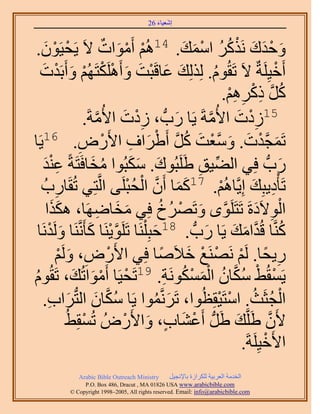 إشعياء 26
وَحْدَكَ نَذْكُرُ اسْمَكَ. 14هُمْ أَمْوَاتٌ لاَ يَحْيَوْنَ.
أَخْيِلَةٌ لاَ تَقُومُ. لِذلِكَ عَاقَبْتَ وَأَهْلَكْتَهُمْ وَأَبَدْتَ
كُلَّ ذِكْرِهِمْ.
15زِدْتَ الأُمَّةَ يَا رَبُّ، زِدْتَ الأُمَّةَ.
تَمَجَّدْتَ. وَسَّعْتَ كُلَّ أَطْرَافِ الأَرْضِ. 16يَا
رَبُّ فِي الضِّيقِ طَلَبُوكَ. سَكَبُوا مُخَافَتَةً عِنْدَ
تَأْدِيبِكَ إِيَّاهُمْ. 17كَمَا أَنَّ الْحُبْلَى الَّتِي تُقَارِبُ
الْوِلاَدَةَ تَتَلَوَّى وَتَصْرُخُ فِي مَخَاضِهَا، هكَذَا
كُنَّا قُدَّامَكَ يَا رَبُّ. 18حَبِلْنَا تَلَوَّيْنَا كَأَنَّنَا وَلَدْنَا
رِيحًا. لَمْ نَصْنَعْ خَلاَصًا فِي الأَرْضِ، وَلَمْ
يَسْقُطْ سُكَّانُ الْمَسْكُونَةِ. 19تَحْيَا أَمْوَاتُكَ، تَقُومُ
الْجُثَثُ. اسْتَيْقِظُوا، تَرَنَّمُوا يَا سُكَّانَ التُّرَابِ.
لأَنَّ طَلَّكَ طَلُّ أَعْشَابٍ، وَالأَرْضُ تُسْقِطُ
الأَخْيِلَةَ.
Arabic Bible Outreach Ministry الخدمة العربية للكرازة بالإنجيل
P.O. Box 486, Dracut , MA 01826 USA www.arabicbible.com
© Copyright 1998-2005, All rights reserved. Email: info@arabicbible.com